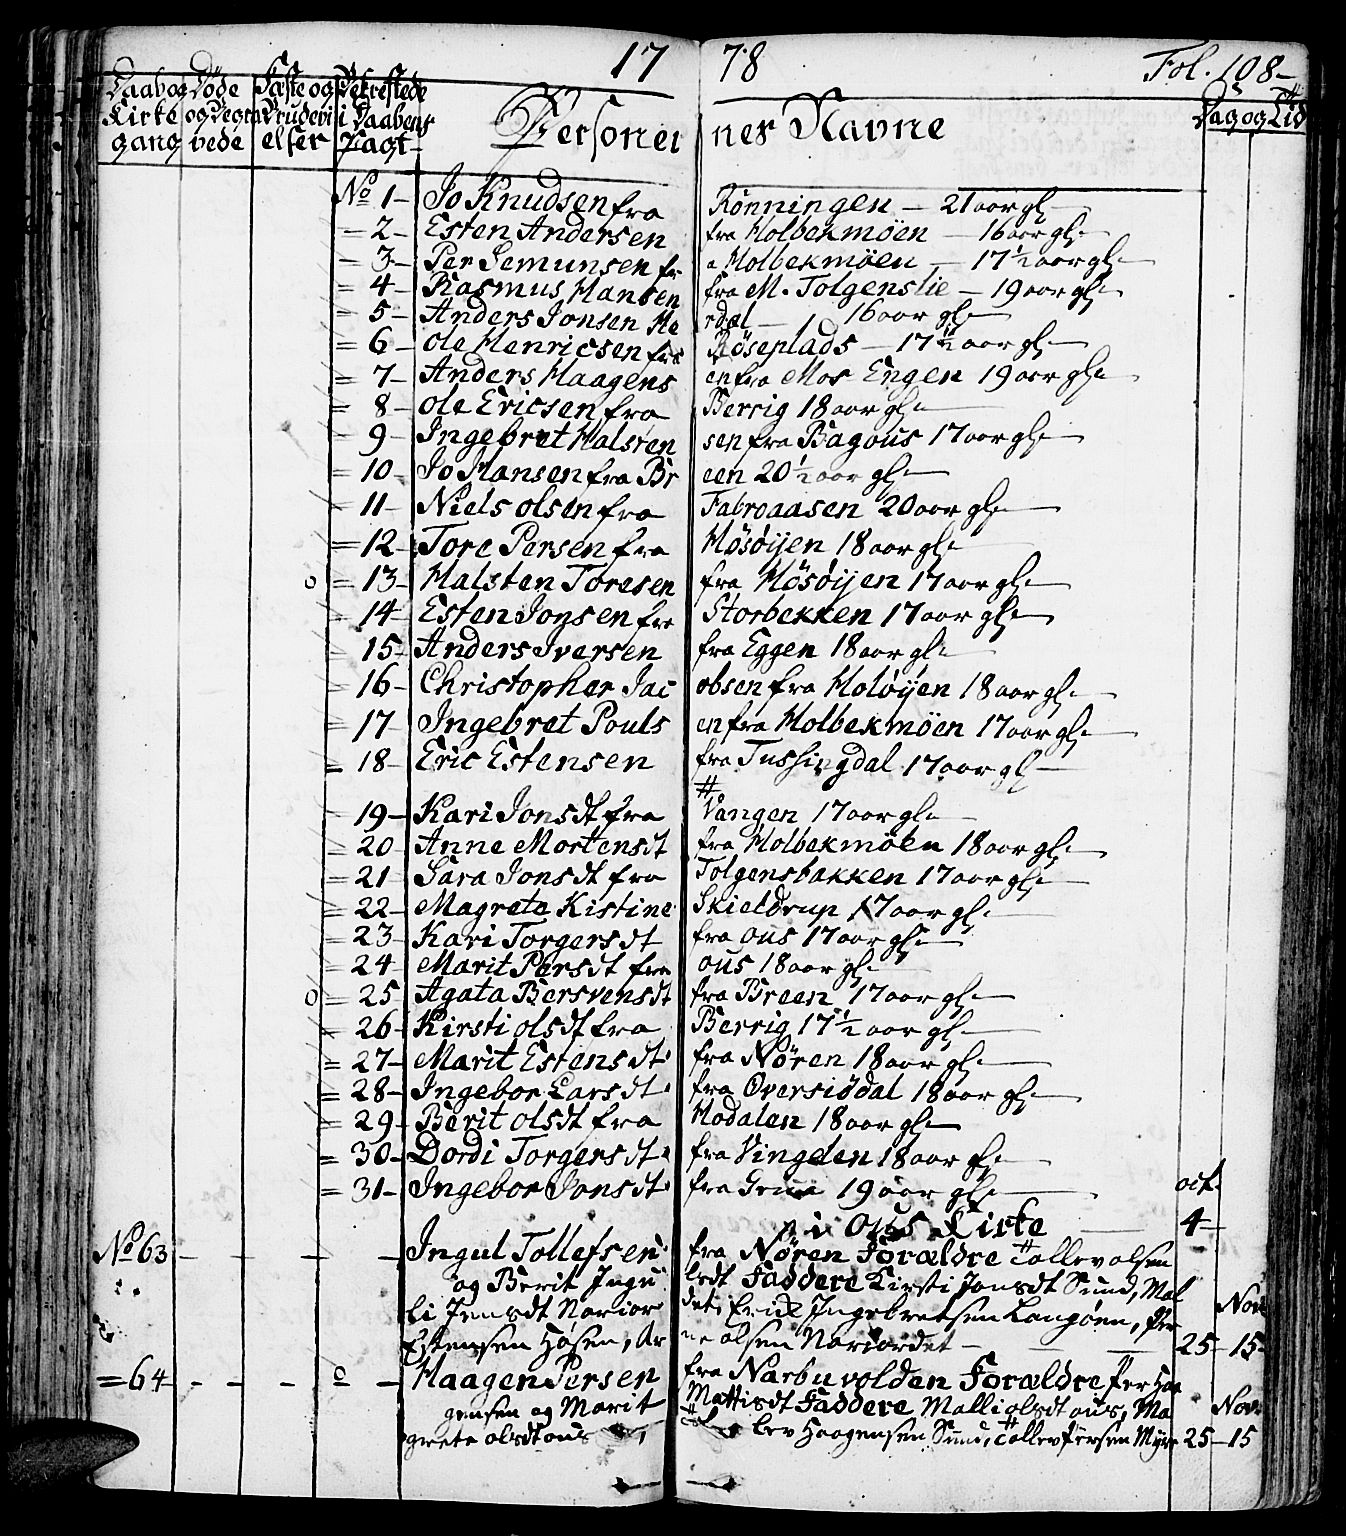 17 78 Fol. 108-
Daab og Døde Fæste og Bekreftede Dag og Tid
Kirke og Begra Brudevi i Daabens
gang vede elser Pagt Personer nes Navne
No 1- Jo Knudsen fra Rønningen - 21 aar gl.
= 2- Esten Andersen fra Holbekmöen - 16 aar gl.
= 3- Per Semunsen fr a Holbekmöen - 17 ½ aar gl.
= 4- Rasmus Hansen fra M. Tolgenslie - 19 aar gl.
= 5- Anders Jonsen He rdal - 16 aar gl.
= 6- Ole Henricsen fra Röseplads - 17 ½ aar gl.
= 7- Anders Haagens en fra Mos Engen 19 aar gl.
= 8- Ole Ericsen fra Berrig 18 aar gl.
= 9- Ingebret Halsten sen fra Bagous 17 aar gl.
= 10- Jo Hansen fra Br een 20 ½ aar gl.
11- Niels Olsen fra Fabroaasen 20 aar gl.
= 12- Tore Persen fra Hösöijen 18 aar gl.
o = 13- Halsten Toresen fra Hösöijen 17 aar gl.
14- Esten Jonsen fra Storbekken 17 aar gl.
15- Anders Iversen fra Eggen 18 aar gl.
= 16- Christopher Jac obsen fra Holöijen 18 aar gl.
= 17- Ingebret Pouls en fra Holbekmöen 17 aar gl.
= 18- Eric Estensen fra Tussingdal 17 aar gl.
19- Kari Jonsdt fra Vangen 17 aar gl.
= 20- Anne Mortensdt fra Holbekmöen 18 aar gl.
= 21- Sara Jonsdt fra Tolgensbakken 17 aar gl.
= 22- Magrete Kistine Skieldrup 17 aar gl.
= 23- Kari Torgersdt fra Ous 17 aar gl.
= 24- Marit Persdt fra Ous 18 aar gl.
o = 25- Agata Bersvensdt fra Breen 17 aar gl.
= 26- Kirsti Olsdt fra Berrig 17 ½ aar gl.
= 27- Marit Estensdt. fra Nören 18 aar gl.
= 28- Ingebor Larsdt. fra Oversiödal 18 aar gl.
= 29- Berit Olsdt fra Hodalen 18 aar gl.
= 30- Dordi Torgersdt. fra Vingelen 18 aar gl.
= 31- Ingebor Jonsdt. fra Gruen 19 aar gl. oct.
i Ous Kirke 4-
No 63 - - - - Ingul Tollefsen fra Nören Forældre Tollev Olsen
og Berit Ingu ledt Faddere Kirsti Jonsdt Sund, Mal
li Jensdt Narior det, Erich Ingebretsen Langöen, Per Nov.
Estensen Hosen, Ar ne Olsen Nariordet - 25- 15-
= 64 - - - o - Haagen Persen fra Narbuvolden Forældre Per Haa
gensen og Marit Mattisdt Faddere Malli Olsdt Ous, Ma Nov.
grete Olsdt Ous, lev Haagensen Sund, Tollev Persen Myre 25-15